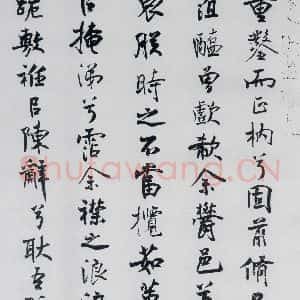 量鑿而正枘兮固前脩
醢曾歔欷余鬱邑兮
哀朕時之不當攬茹
㠯掩涕兮霑余襟之浪浪
跪敷衽㠯陳辭兮耿吾
Shufawang.CN